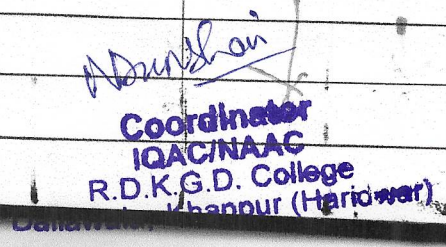 Coordinator
IQAC/NAAC
R.D.K.G.D. College
Khanpur (Haridwar)